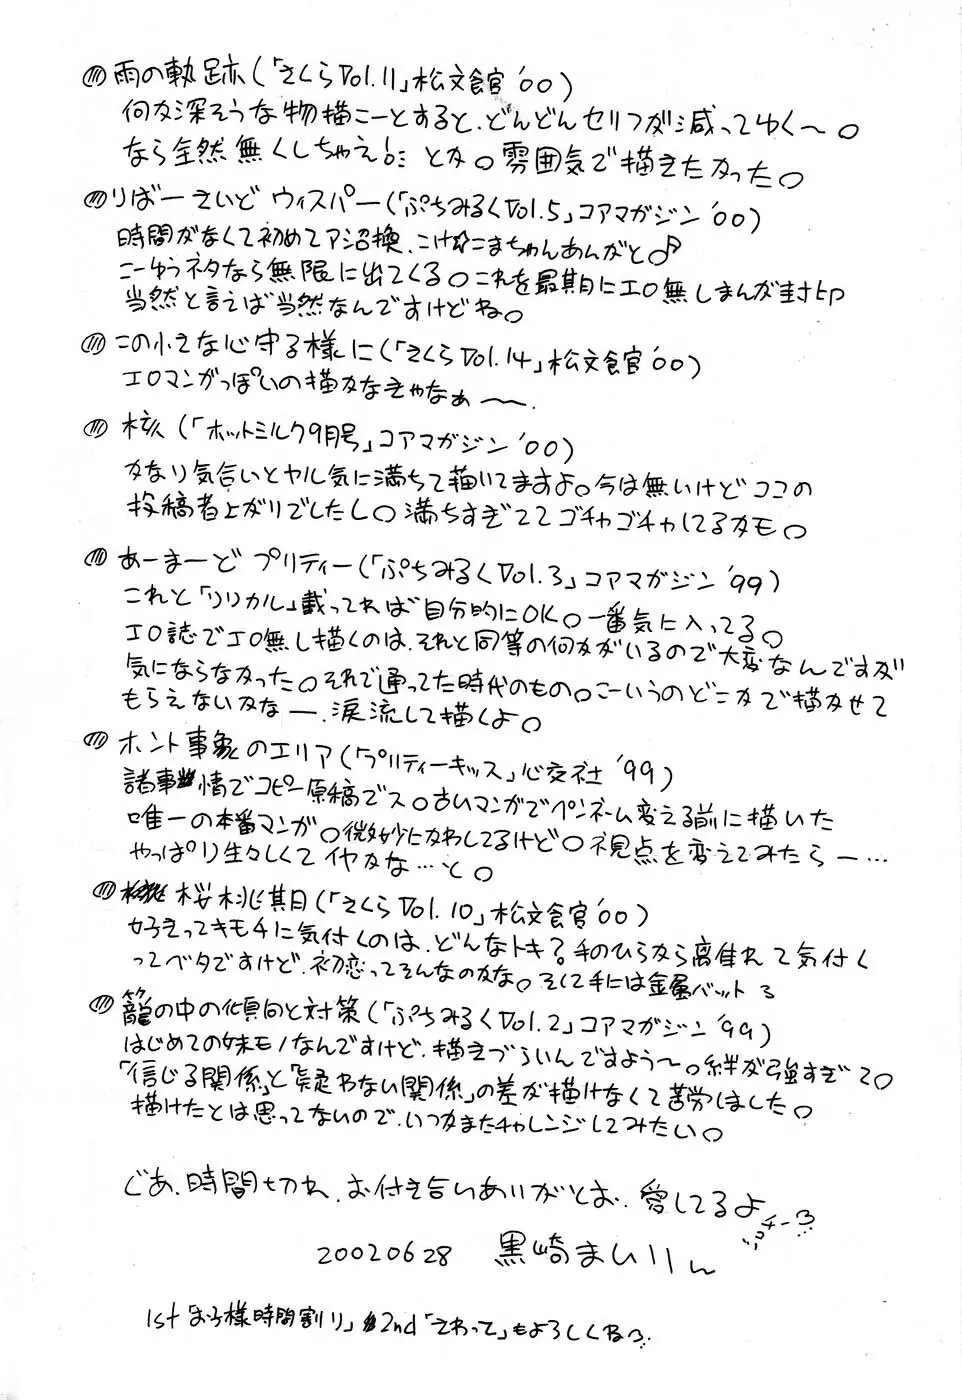 雨の軌跡(「さくらVol.11」松文館'00)
何か深そうな物描こーとすると、どんどんセリフが減ってゆく〜。
なら全然無くしちゃえ!とか。雰囲気で描きたかった。
りばーさいど ウィスパー(「ぷちみるくVol.5」コアマガジン'00)
時間がなくて初めてア沼換、こけ☆こまちゃんあんがと♪
こーゆうネタなら無限に出てくる。これを最期にエロ無しまんが封印
当然と言えば当然なんですけどね。
この小さな心守る様に(「さくらVol.14」松文館'00)
エロマンガっぽいの描かなきゃなぁ〜。
核(「ホットミルク9月号」コアマガジン'00)
かなり気合いとヤル気に満ちて描いてますよ。今は無いけどココの
投稿者上がりでしたし。満ちすぎててゴチャゴチャしてるカモ。
あーまーど プリティー(「ぷちみるくVol.3」コアマガジン'99)
これと「リリカル」載ってれば自分的にOK。一番気に入ってる。
エロ誌でエロ無し描くのは、それと同等の何かがいるので大変なんですが
気にならなかった。それで通ってた時代のもの。こーいうのどこかで描かせて
もらえないかなー、涙流して描くよ。
ホント事象のエリア(「プリティーキッス」心交社'99)
諸事情でコピー原稿でス。古いマンガでペンネーム変える前に描いた
唯一の本番マンガ。微妙にかわしてるけど。視点を変えてみたらー…
やっぱり生々しくてイヤかな…と。
桜桃期(「さくらVol.10」松文館'00)
好きってキモチに気付くのは、どんなトキ?手のひらから離れて気付く
ってベタですけど、初恋ってそんなのかな。そして手には金属バット3
籠の中の傾向と対策(「ぷちみるくVol.2」コアマガジン'99)
はじめての妹モノなんですけど、描きづらいんですよう〜。絆が強すぎて。
「信じる関係」と「疑わない関係」の差が描けなくて苦労しました。
描けたとは思ってないので、いつかまたチャレンジしてみたい。
じあ、時間切れ、お付き合いありがとお、愛してるよ
20020628 黒崎まいりん
1st「お子様時間割り」2nd「さわって」もよろしくね